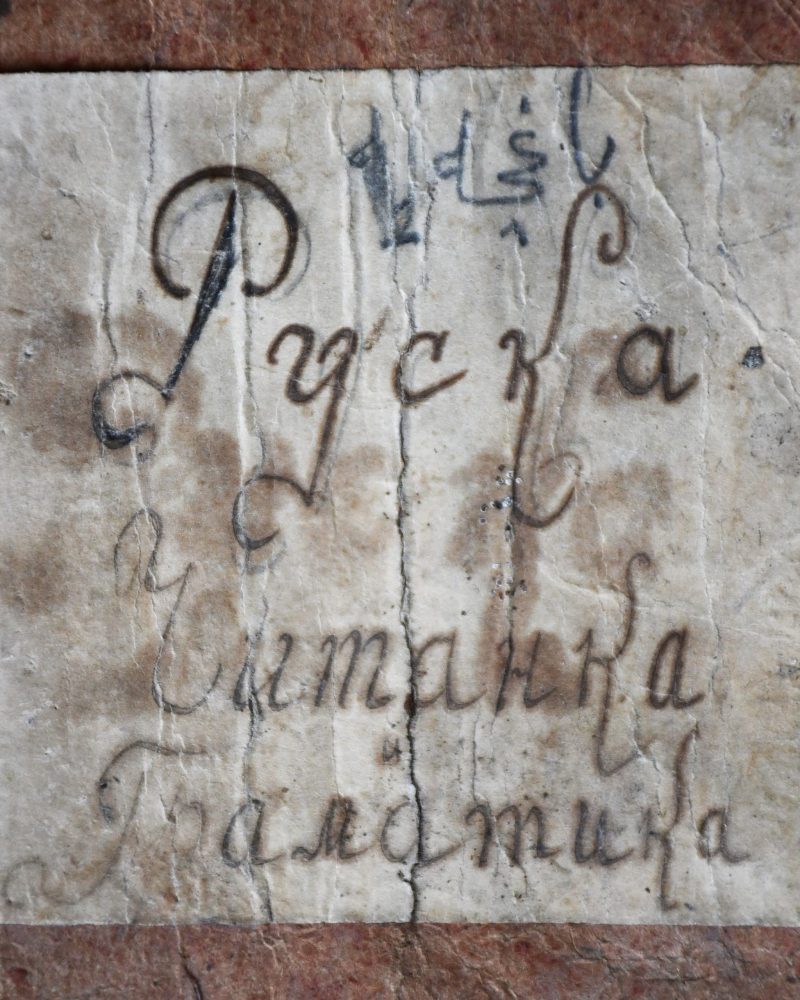 Руска
Читанка
и
Граматика